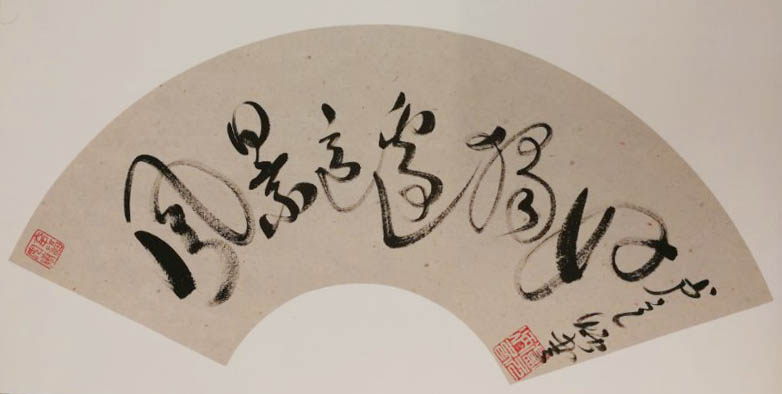 風景這邊獨好